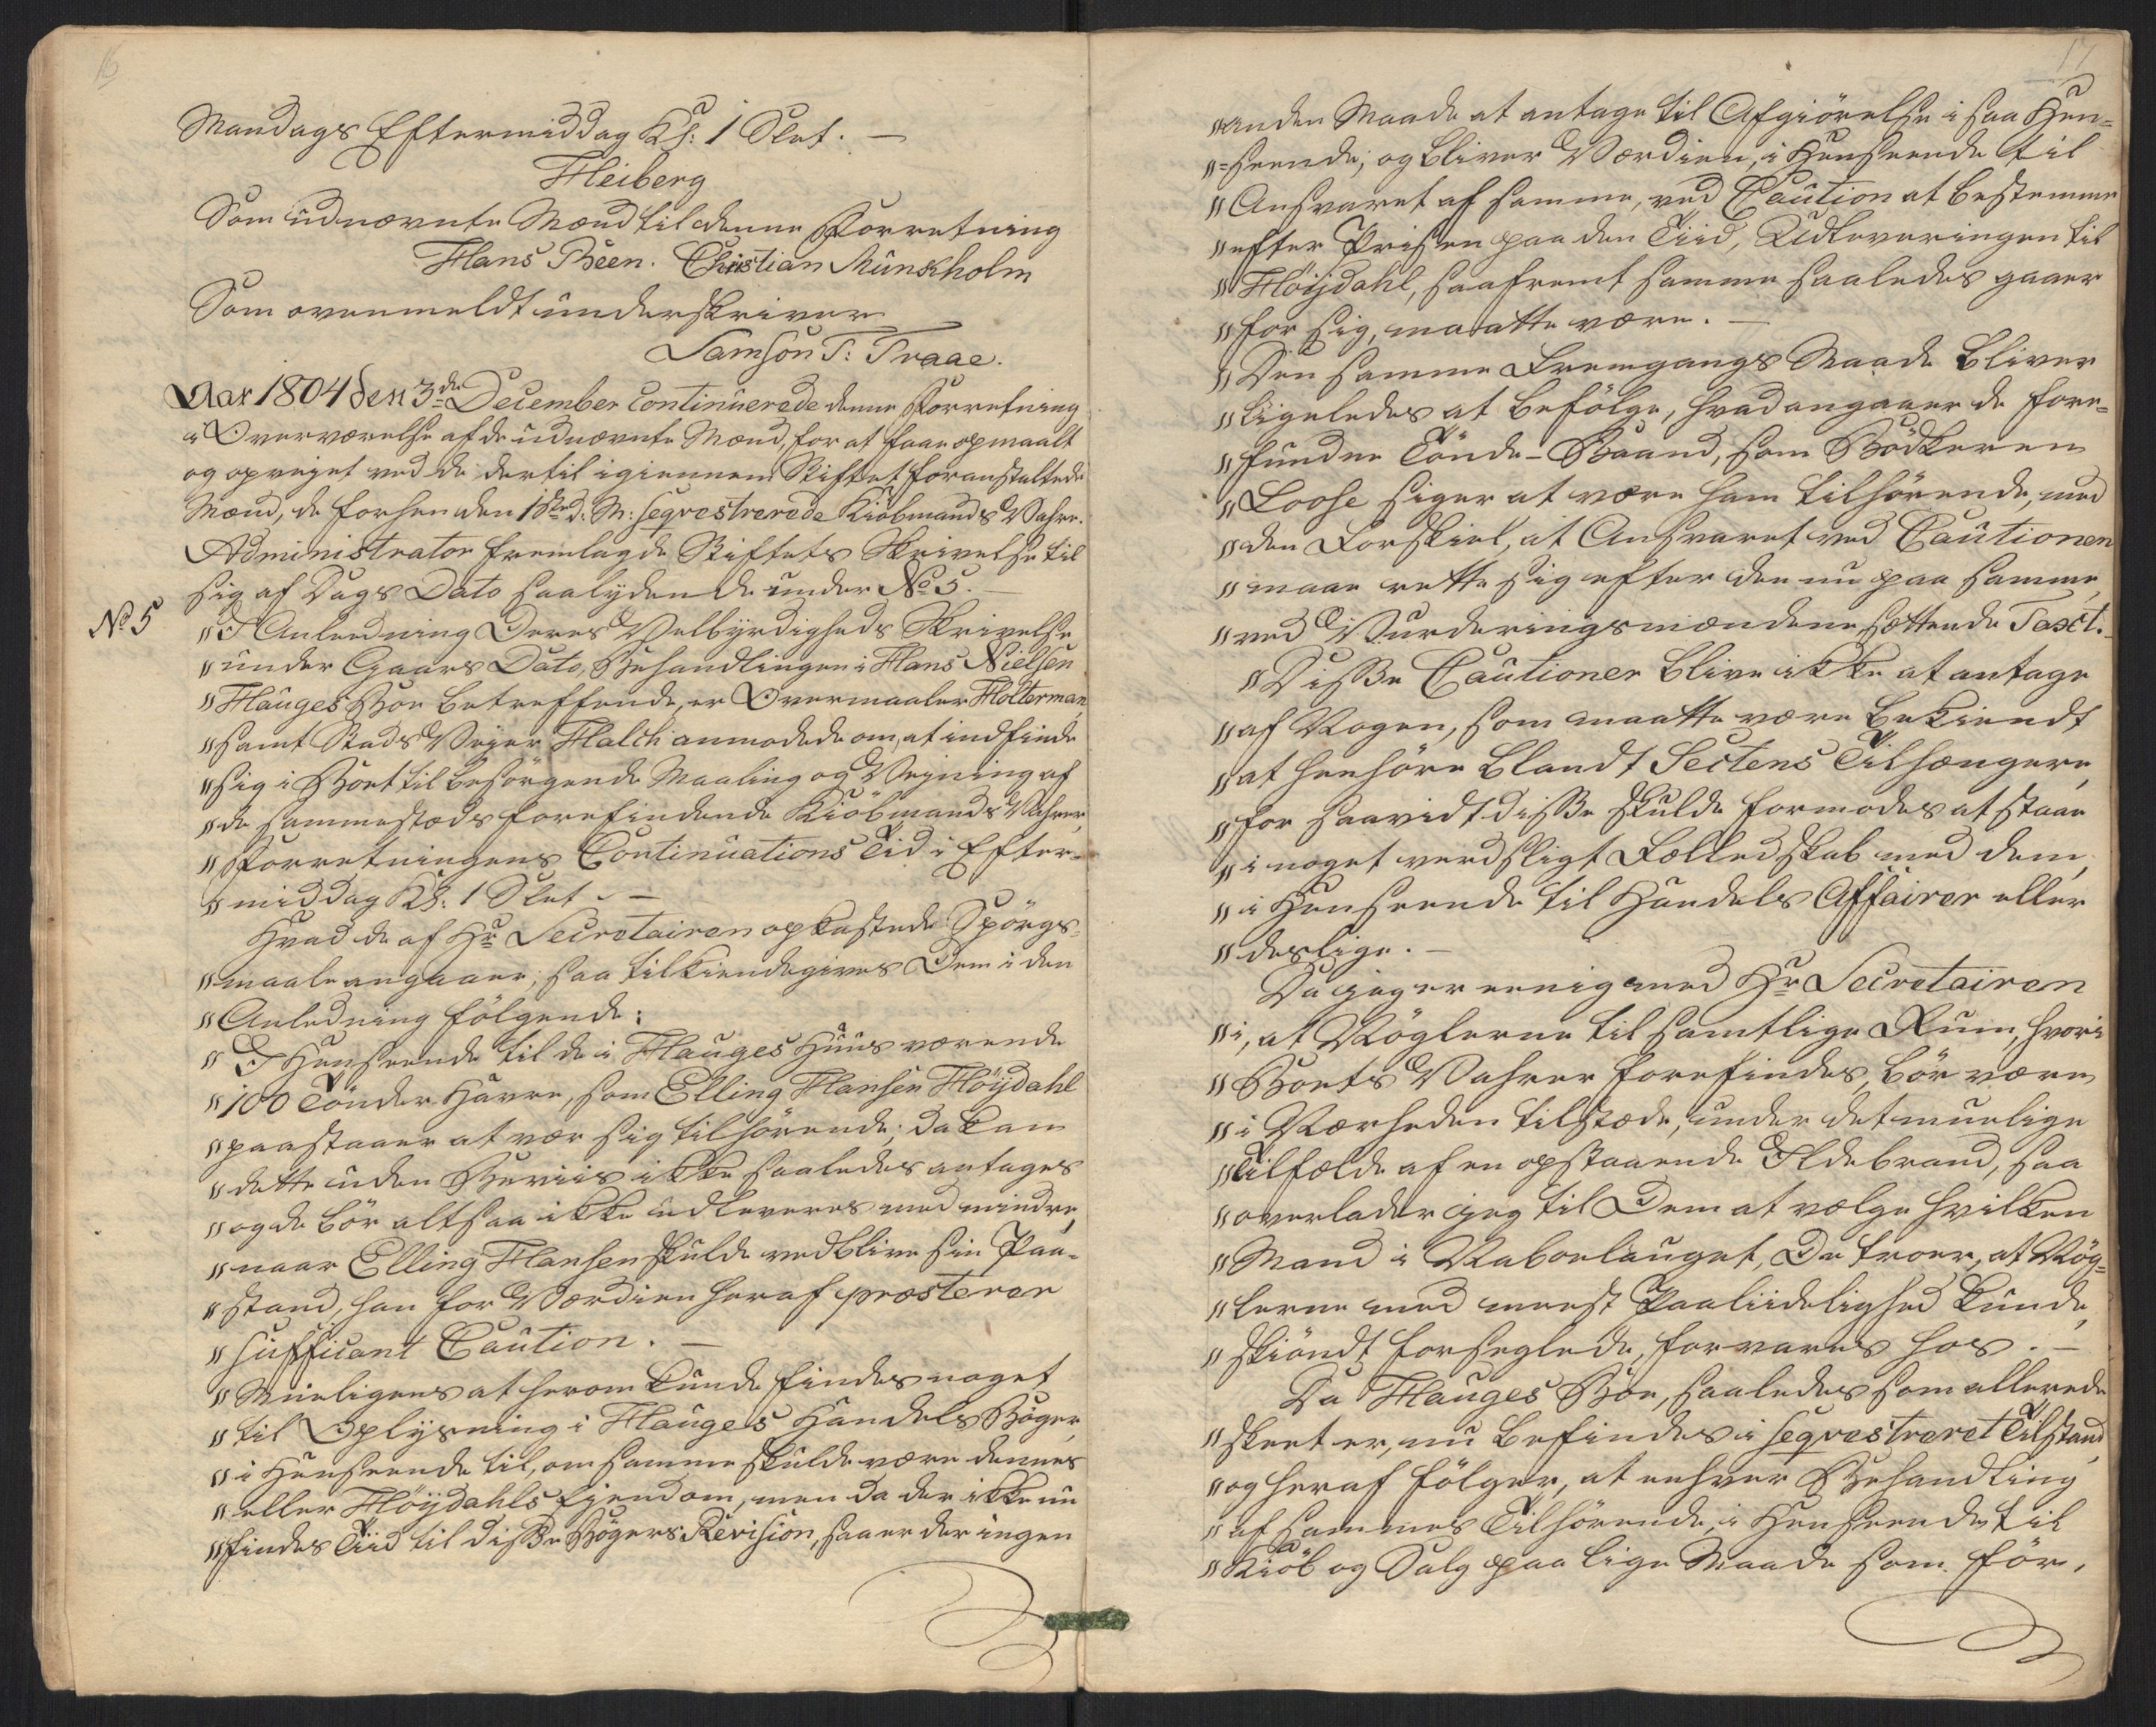 16
Mandags Eftermiddag Kl: 1 Slet. —
Heiberg
Som udnævnte Mænd til denne Forretning
Hans Been. Christian Munkholm
Som ovenmeldt underskriver
Samson T: Traae.
Aar 1804 den 3de December Continuerede denne Forretning
i Overværelse af de udnævnte Mænd, for at faae opmaalt
og opvejet ved de dertil igiennem Stiftet foranstaltede
Mænd, de forhen den 1ste d: M: seqvestrerede Kiøbmands Vahre.
Administrator fremlagde Stiftets Skrivelse til
sig af Dags Dato saalydende under No 5. —
No 5
"I Anledning Deres Velbyrdigheds Skrivelse
"under Gaars Dato, Behandlingen i Hans Nielsen
"Hauges Boe betreffende, er Overmaaler Holterman
"samt Stads Vejer Halch anmodede om, at indfinde
"sig i Boet til besörgende Maaling og Vejning af
"de sammesteds forefindende Kiöbmands Vahrer,
"Forretningens Continuations Tid i Efter-
"middag Kl: 1 Slet. —
Hvad de af Hr Secretairen opkastede Spörgs-
"maale angaaer; saa tilkiendegives Dem i den
"Anledning fölgende:
"I Henseende til de i Hauges Huus værende
"100 Tönder Havre, som Elling Hansen Höijdahl
"paastaaer at vær sig tilhörende; da kan
"dette uden Beviis ikke saaledes antages
"og de bör altsaa ikke udleveres med mindre,
"naar Elling Hansen skulde vedblive sin Paa-
"stand, han for Værdien heraf præsterer
"sufficant Caution. —
"Mueligens at herom kunde findes noget
"til Oplysning i Hauges Handels Böger,
"i Henseende til, om samme skulde være dennes
"eller Höijdahls Ejendom, men da der ikke nu
"findes Tiid til disse Bögers Revision, saa er der ingen
17
"anden Maade at antage til Afgiörelse i saa Hen-
"-seende; og bliver Værdien, i Henseende til
"Ansvaret af samme, ved Caution at bestemme
"efter Prisen paa den Tiid, Udleveringen til
"Höijdahl, saafremt samme saaledes gaaer
"for sig, maatte være. —
"Den samme Fremgangs Maade bliver
"ligeledes at befölge, hvad angaaer de fore-
"fundne Tönde-Baand, som Bödkeren
"Loose siger at være ham tilhörende, med
"den Forskiel, at Ansvaret ved Cautionen
"maae rette sig efter den nu paa samme,
"ved Vurderingsmændene, sættende Taxt.
"Disse Cautioner blive ikke at antage
"af Nogen, som maatte være bekiendt
"at henhöre blandt Sectens Tilhængere,
"for saavidt disse skulde formodes at staae
"i noget verdsligt Fælledskab med dem,
"i Henseende til Handels Affairer eller
"deslige. —
Da jeg er eenig med Hr Secretairen
"i, at Nöglerne til samtlige Rum, hvori
"Boets Vahrer forefindes, bör være
"i Nærheden tilstæde, under det muelige
"Tilfælde af en opstaaende Ildebrand, saa
"overlader jeg til Dem at vælge hvilken
"Mand i Naboelauget, De troer, at Nög-
"lerne med meest Paaliidelighed kunde,
"skiöndt forseglede, forvares hos. —
Da Hauges Boe, saaledes som allerede
"skeet er, nu befindes i seqvestreret Tilstand,
"og heraf fölger, at enhver Behandling
"af sammes Tilhörende, i Henseende til
"Kiöb og Salg paa lige Maade som för,